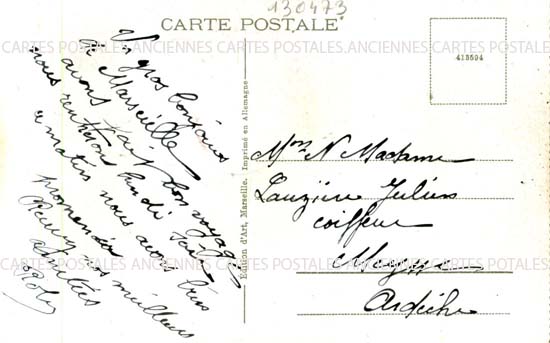 130473
CARTE POSTALE
CARTES POSTALES ANCIENNES CARTES POSTALES ANCIENNES CARTES POSTALES
415504
Un gros bonjour
de Marseille
avons fait bon voyage
nous rentrons lundi
matin nous avons bien
promenés
Recevez nos meilleurs
Amitiés
Edition d'Art, Marseille. Imprimé en Allemagne
Mr N Madame
Lauzière Julien
coiffeur
Meysse
Ardèche
CARTES POSTALES ANCIENNES CARTES POSTALES ANCIENNES CARTES POSTALES